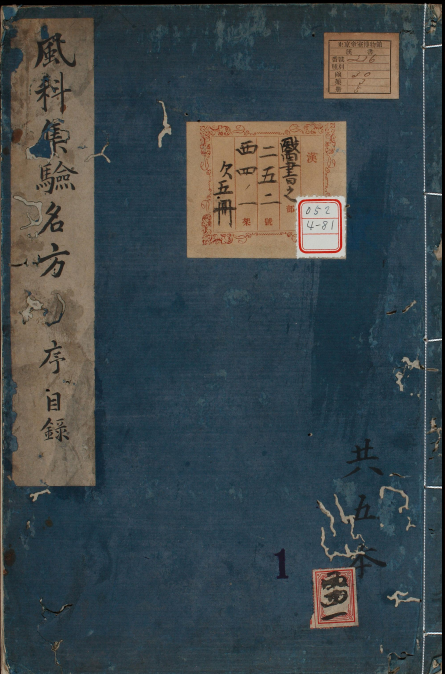 風科集驗名方
序目錄
漢
醫書之
部
二五二
號
西四ノ一
架
欠五冊
052
4-81
共五本
1
西四一